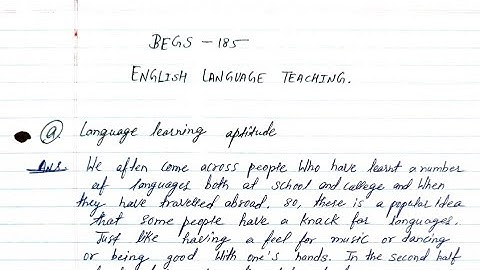 BEGS - 185
ENGLISH LANGUAGE TEACHING.
(a) Language learning aptitude
Ans. We often come across people who have learnt a number
of languages both at school and college and when
they have travelled abroad. So, there is a popular idea
that some people have a knack for languages.
Just like having a feel for music or dancing
or being good with one's hands. In the second half